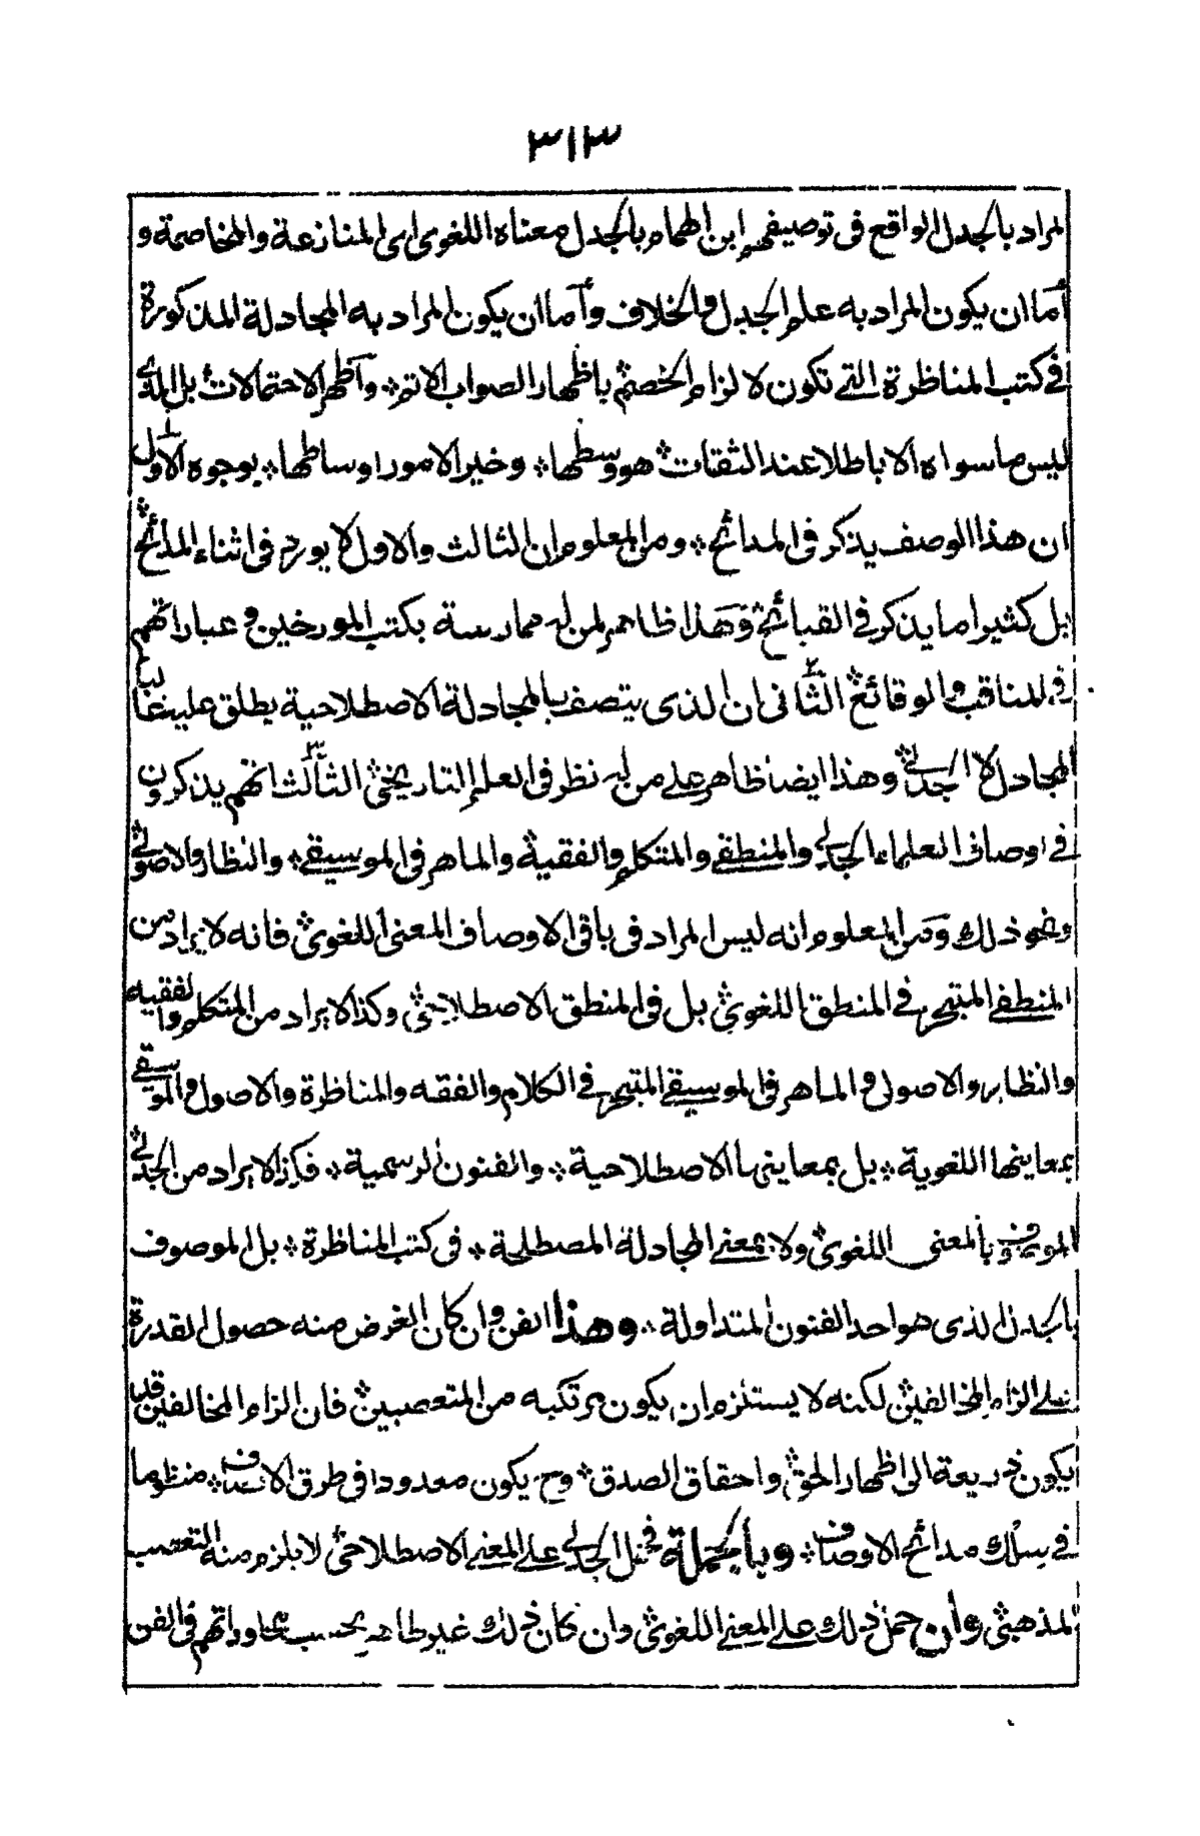 ٣١٣
المراد بالجدل الواقع فى توصيفهم ابن الهمام بالجدل معناه اللغوى اى المنازعة والمخاصمة و
أما ان يكون المراد به علم الجدل والخلاف وأما ان يكون المراد به المجادلة المذكورة
فى كتب المناظرة التى تكون لالزام الخصم باظهار الصواب الاتم وأظهر الاحتمالات بل الذى
ليس ما سواه الا باطلا عند الثقات هو وسطها وخير الامور اوساطها بوجوه الأول
ان هذا الوصف يذكر فى المدائح ومن المعلوم ان الثالث والاول لا يورد فى اثناء المدائح
بل كثيرا ما يذكر فى القبائح وهذا ظاهر لمن له ممارسة بكتب المورخين وعباراتهم
فى المناقب والوقائع الثانى ان الذى يتصف بالمجادلة الاصطلاحية يطلق عليه غالبا
المجادل لا الجدلى وهذا ايضا ظاهر على من له نظر فى العلم التاريخى الثالث انهم يذكرون
فى اوصاف العلماء الجدلى والمنطقى والمتكلم والفقيه والماهر فى الموسيقى والنظار والاصولى
ونحو ذلك ومن المعلوم انه ليس المراد فى باقى الاوصاف المعنى اللغوى فانه لا يراد من
المنطقى المتبحر فى المنطق اللغوى بل فى المنطق الاصطلاحى وكذا لا يراد من المتكلم والفقيه
والنظار والاصولى والماهر فى الموسيقى المتبحر فى الكلام والفقه والمناظرة والاصول والموسيقى
بمعاينها اللغوية بل بمعاينها الاصطلاحية والفنون الرسمية فكذا لا يراد من الجدلى
الموصوف بالمعنى اللغوى ولا بمعنى المجادلة المصطلحة فى كتب المناظرة بل الموصوف
بالجدل الذى هو احد الفنون المتداولة وهذا الفن وان كان الغرض منه حصول القدرة
على الزام المخالفين لكنه لا يستلزم ان يكون مرتكبه من المتعصبين فان الزام المخالفين قد
يكون ذريعة الى اظهار الحق واحقاق الصدق وح يكون معدودا فى طرق الانصاف منظوما
فى سلك مدائح الاوصاف وبالجملة فحمل الجدلى على المعنى الاصطلاحى لا يلزم منه التعصب
المذهبى وان حمل ذلك على المعنى اللغوى وان كان ذلك غير ظاهر بحسب محاوراتهم فى الفن